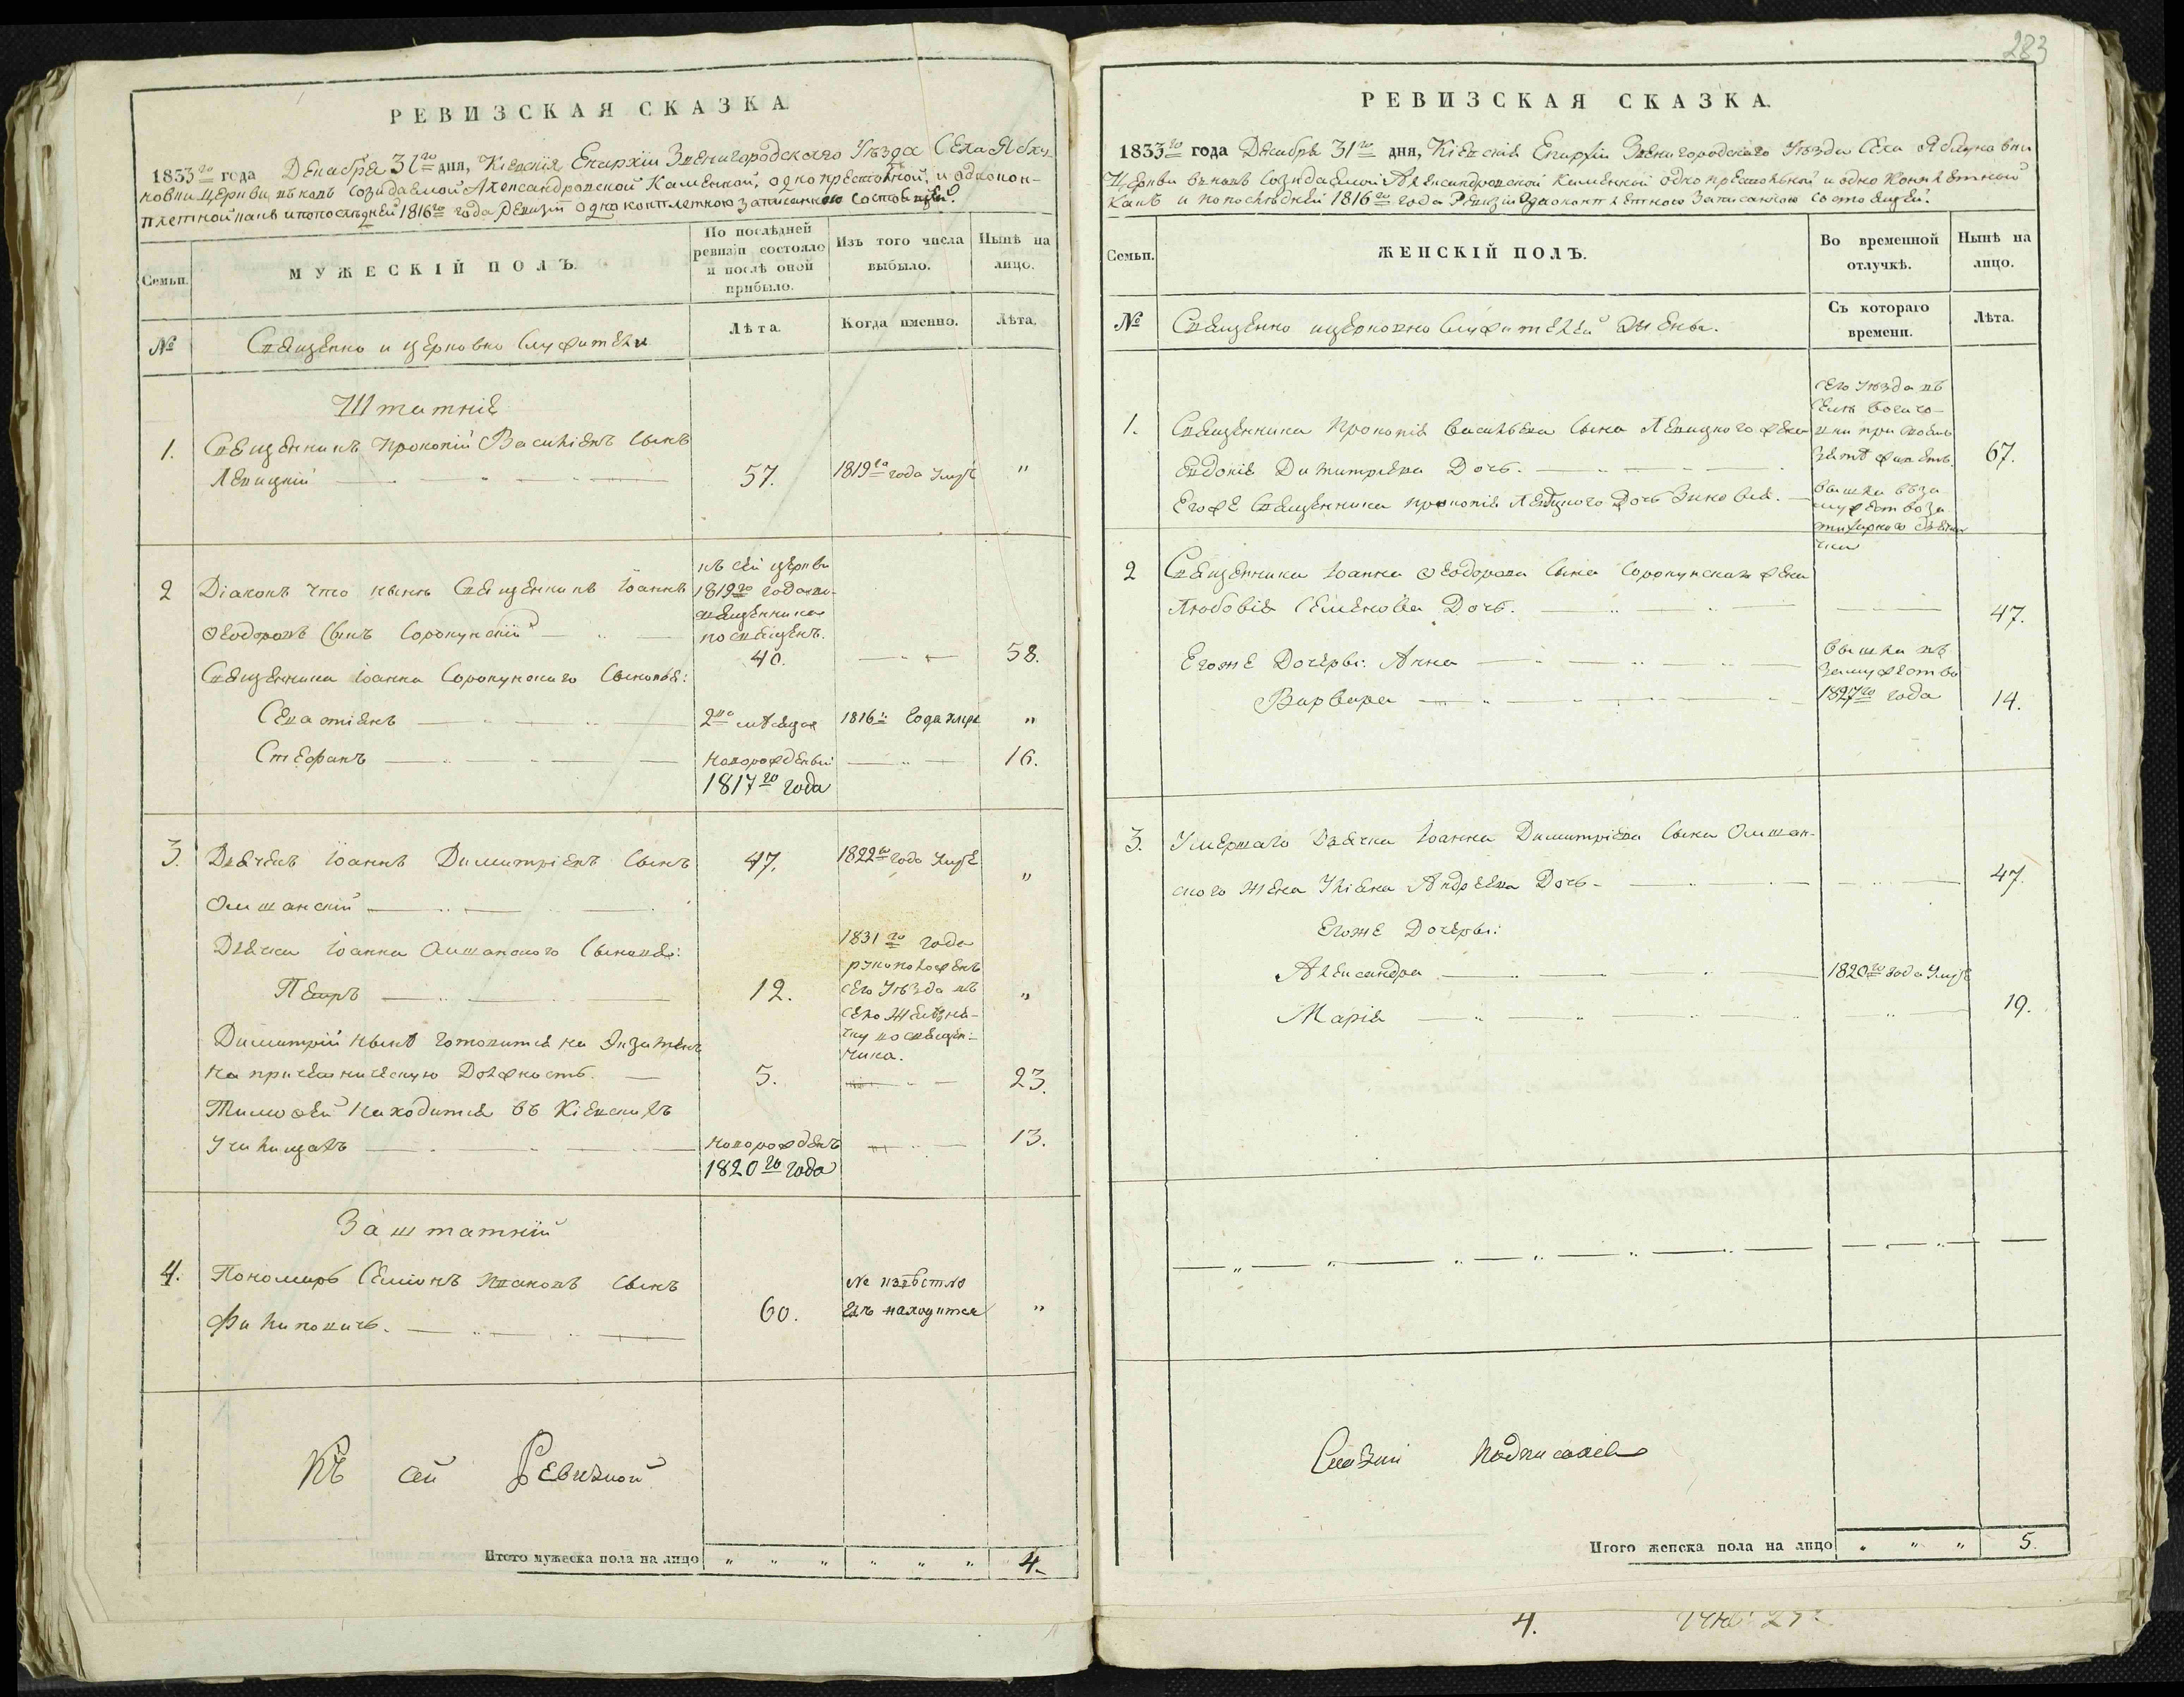 РЕВИЗСКАЯ СКАЗКА.
1833го года Декабря 31го дня, Кіевскія Епархіи Звенигородскаго Уѣзда Села Яблу-
новки Церкви въновь созидаемой Александровской Каменной, однопрестолной, и одноком-
плетной какъ и попослѣдней 1816го года Ревизіи однокомплетною записанною состоящей.
Семьи.
МУЖЕСКІЙ ПОЛЪ.
По послѣдней
ревизіи состояло
и послѣ оной
прибыло.
Изъ того числа
выбыло.
Нынѣ на
лицо.
№
Священно и церковно служители
Лѣта.
Когда именно.
Лѣта.
Штатніе
1. Священникъ Прокопій Василіевъ Сынъ
Левицкій 57. 1819го года Умре "
2 Діаконъ что нынѣ Священникъ Іоаннъ
Ѳеодоровъ Сынъ Сорокунскій
къ сей церкви
1819го года во
священника
посвященъ.
40. 58.
Священника Іоанна Сорокунского Сыновья:
Севастіянъ 2ва мѣсяца 1816 Года умре "
Стефанъ Новорожденый 16.
1817го года
3. Дьячекъ Іоаннъ Димитріевъ Сынъ 47. 1822го года Умре "
Омшанскій
Дьячка Іоанна Омшанского Сыновья:
Петръ 12. "
1831го года
рукоположенъ
сего Уѣзда въ
село
во священ-
ника.
Димитрій нынѣ готовится на Экзаменъ
на причетническую Должность. 5. 23.
Тимоѳей находится въ Кіевскихъ
Училищахъ Новорожденъ 13.
1820го года
Заштатній
4. Пономарь Семіонъ Іваковъ Сынъ
Филиповичъ. 60. "
Не извѣстно
гдѣ находится
Къ сей Ревизкой
Итого мужеска пола на лицо " " " " " " 4.
283
РЕВИЗСКАЯ СКАЗКА.
1833го года Декабря 31го дня, Кіевскія Епархіи Звенигородскаго Уѣзда Села Яблуновки
Церкви въновь Созидаемой Александровской Каменной однопрестольной и однокомплетной
какъ и попослѣдней 1816го года Ревизіи Однокомплетною Записанною состоящей.
Семьи.
ЖЕНСКІЙ ПОЛЪ.
Во временной
отлучкѣ.
Нынѣ на
лицо.
№
Священно ицерковно служителей жены.
Съ котораго
времени.
Лѣта.
1. Священника Прокопія Васильева Сына Левицкого жена
Евдокія Димитріева Дочь. 67.
сего Уѣзда въ
селѣ
при своемъ
зятѣ живетъ.
Егоже Священника Прокопія Левицкого Дочь Зиновія.
вышла въ за
мужество за
2 Священника Іоанна Ѳеодорова Сына Сорокунскаго жена
Любовія Семенова Дочь. 47.
Егоже Дочеры: Анна
вышла въ
замужество
1827го года
Варвара 14.
3. Умершаго Дьячка Іоанна Димитріева Сына Омшан-
ского жена Уліяна Андреева Дочь 47.
Егоже Дочеры:
Александра 1820го года Умре
Марія 19.
Сказки подписался
Итого женска пола на лицо " " " 5.
4.